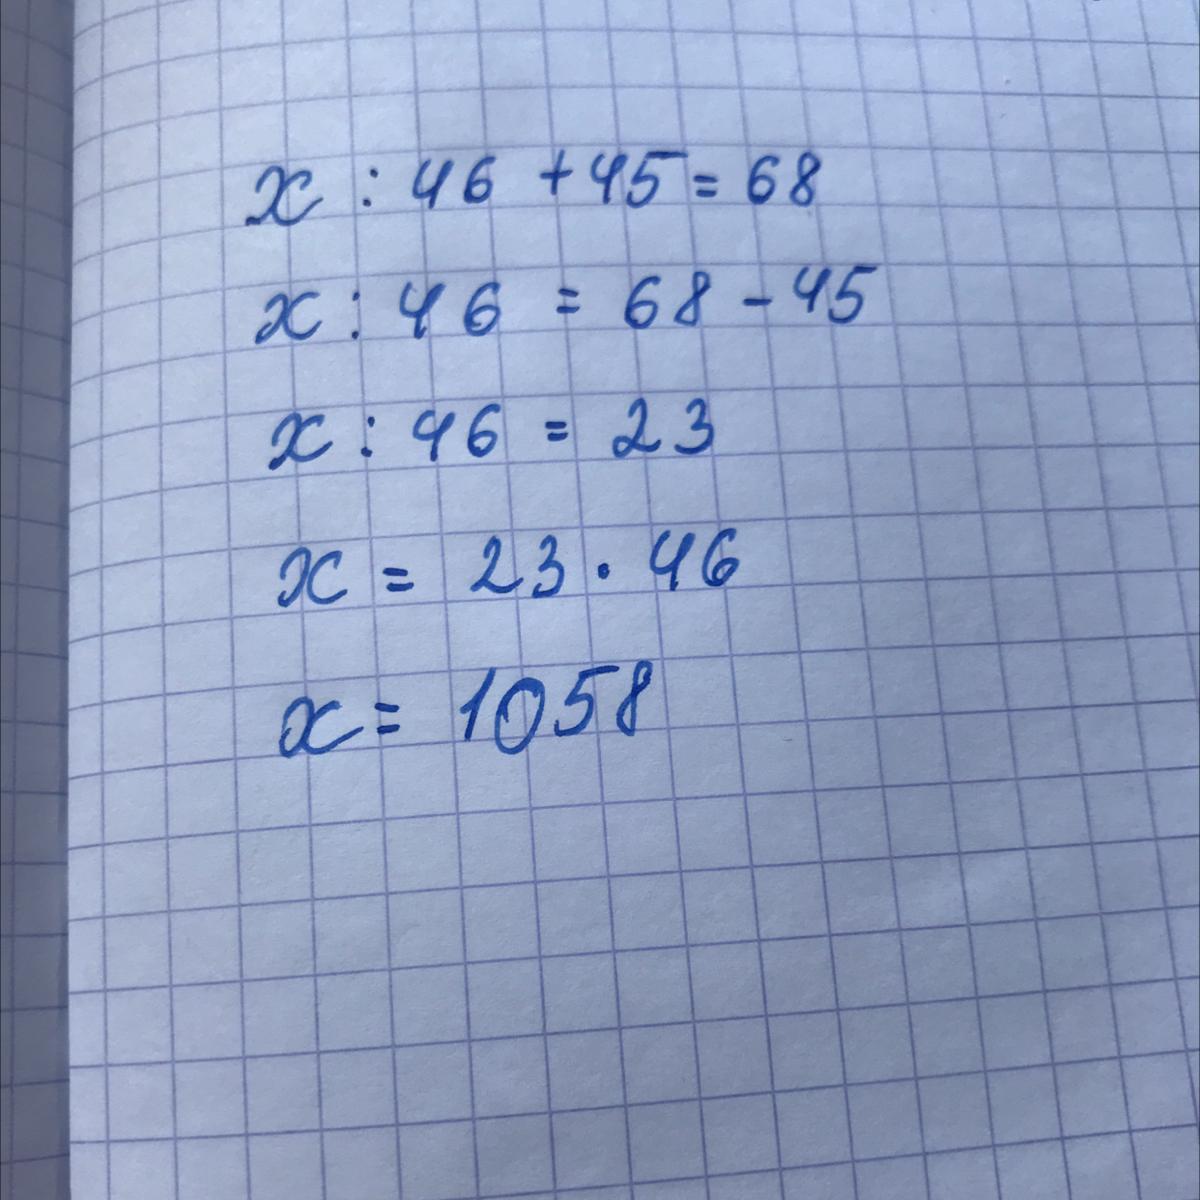 x : 46 + 45 = 68
x : 46 = 68 - 45
x : 46 = 23
x = 23 · 46
x = 1058